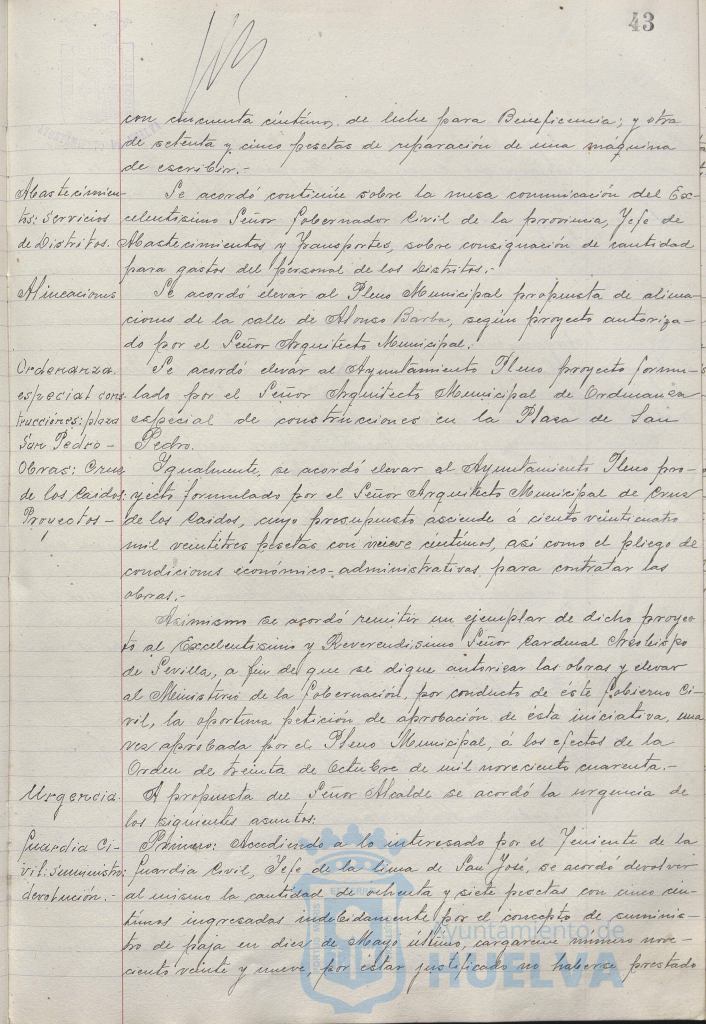 43
con cincuenta céntimos, de leche para Beneficencia; y otra
de setenta y cinco pesetas de reparación de una máquina
de escribir.-
Abastecimien-
tos: Servicios
de Distritos.
Se acordó continúe sobre la mesa comunicación del Ex-
celentísimo Señor Gobernador Civil de la provincia, Jefe de
Abastecimientos y Transportes, sobre consignación de cantidad
para gastos del personal de los Distritos.-
Alineaciones
Se acordó elevar al Pleno Municipal propuesta de alinea-
ciones de la calle de Alonso Barba, según proyecto autoriza-
do por el Señor Arquitecto Municipal.
Ordenanza
especial cons-
trucciones: plaza
San Pedro-
Se acordó elevar al Ayuntamiento Pleno proyecto formu-
lado por el Señor Arquitecto Municipal de Ordenanza
especial de construcciones en la Plaza de San
Pedro.
Obras; Cruz
de los Caidos:
Proyectos-
Igualmente, se acordó elevar al Ayuntamiento Pleno pro-
yecto formulado por el Señor Arquitecto Municipal de Cruz
de los Caidos, cuyo presupuesto asciende á ciento veinticuatro
mil veintitres pesetas con nueve céntimos, así como el pliego de
condiciones económico-administrativas para contratar las
obras.-
Asimismo se acordó remitir un ejemplar de dicho proyec-
to al Excelentísimo y Reverendísimo Señor Cardenal Arzobispo
de Sevilla, a fin de que se digne autorizar las obras y elevar
al Ministerio de la Gobernación, por conducto de éste Gobierno Ci-
vil, la oportuna petición de aprobación de ésta iniciativa, una
vez aprobada por el Pleno Municipal, á los efectos de la
Orden de treinta de Octubre de mil noveciento cuarenta.-
Urgencia.
A propuesta del Señor Alcalde se acordó la urgencia de
los siguientes asuntos:
Guardia Ci-
vil: Suministro:
devolución.-
Primero: Accediendo a lo interesado por el Teniente de la
Guardia Civil, Jefe de la linea de San José, se acordó devolver
al mismo la cantidad de ochenta y siete pesetas con cinco cén-
timos ingresadas indebidamente por el concepto de suminis-
tro de paja en diez de Mayo último, cargareme número nove-
ciento veinte y nueve, por estar justificado no haberse prestado
Ayuntamiento de
HUELVA